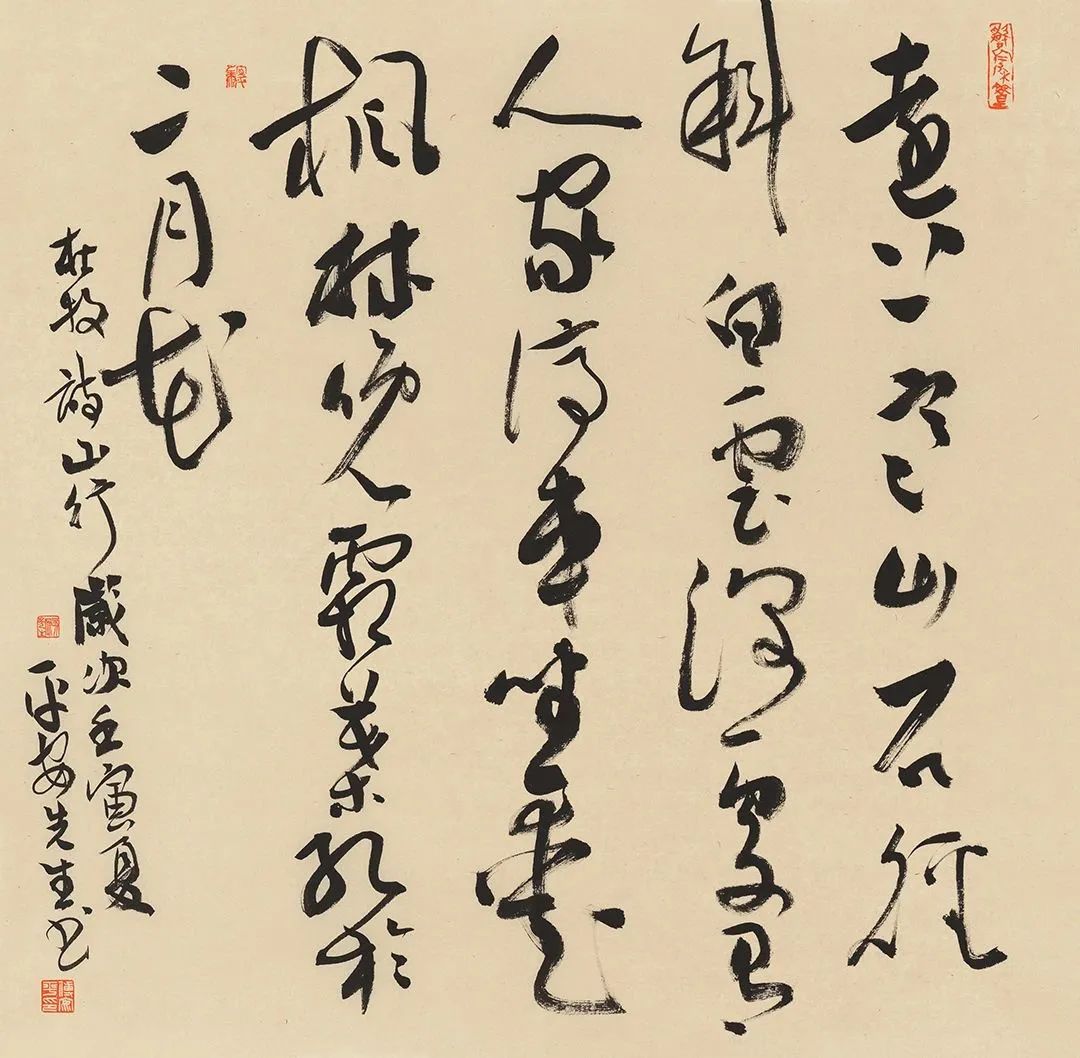 遠上寒山石徑
斜白雲深處有
人家停車坐愛
楓林晚霜葉紅於
二月花
杜牧詩山行歲次壬寅夏
平安先生书